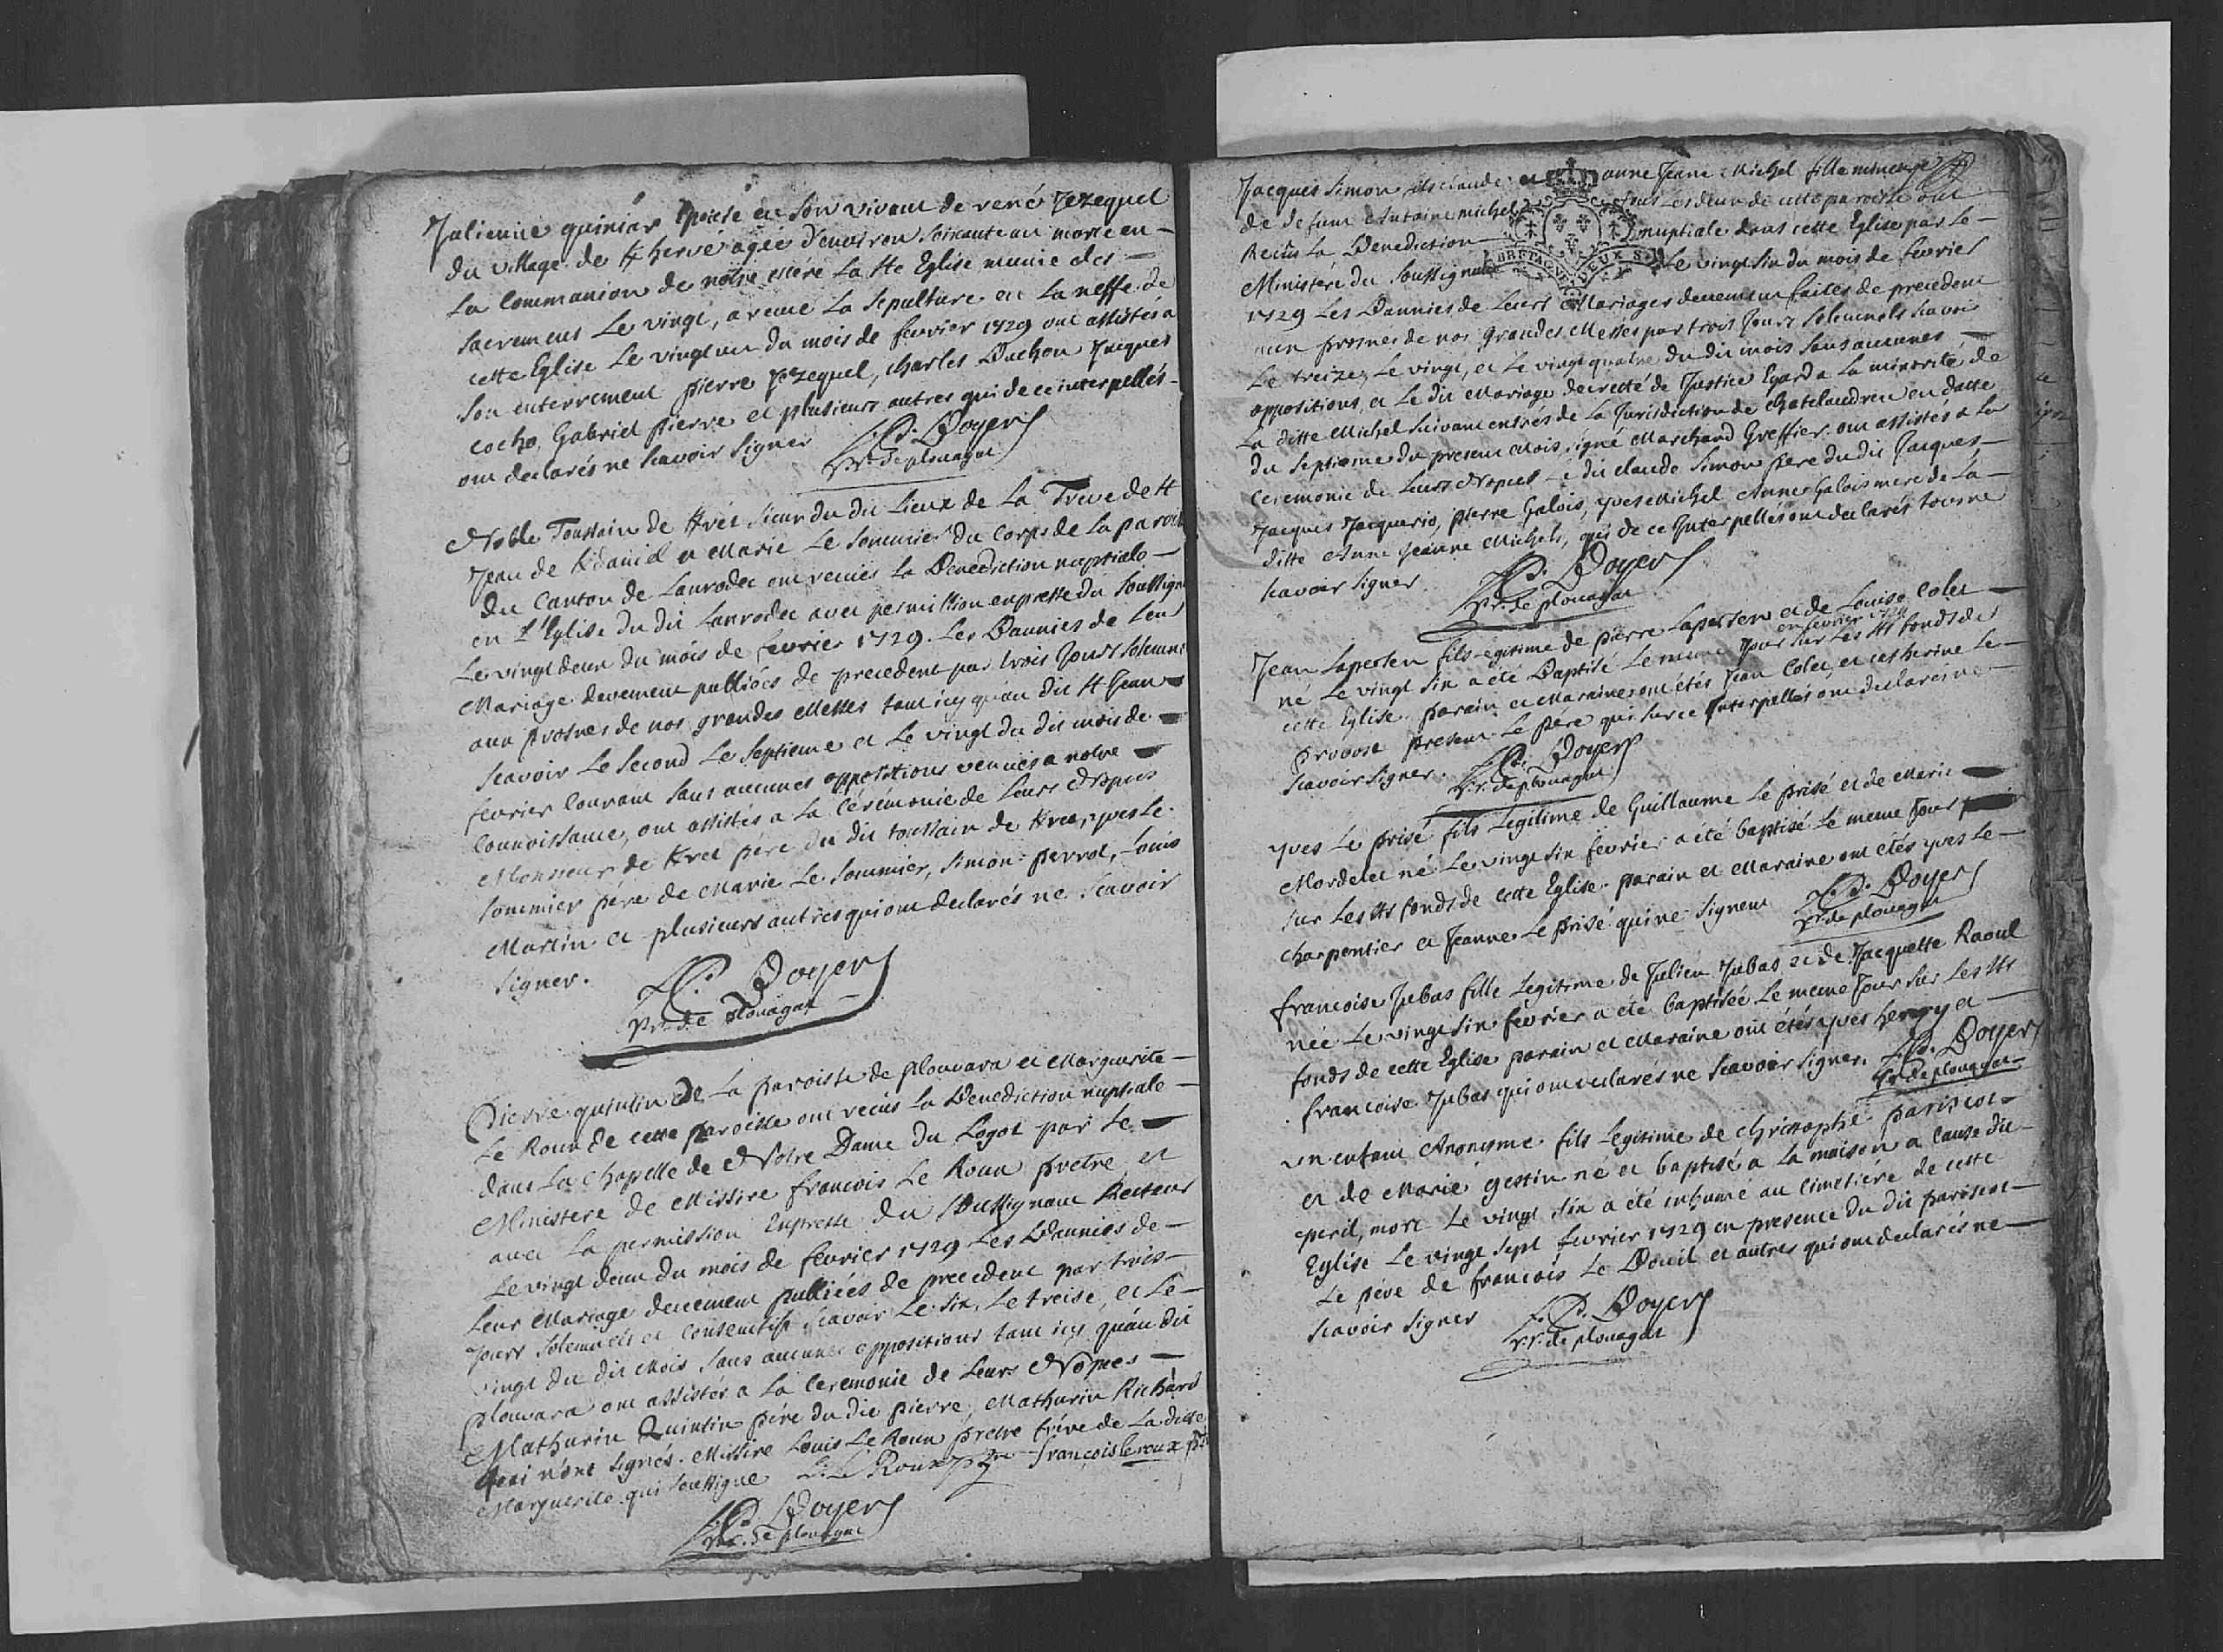 Julienne quiniar Epouse en son vivant de rené Jezequel
du village de Khervé agée d'environ soixante an morte en
la Communion de notre mere la Ste Eglise munie des
sacremens Le vingt, a receu La sepulture en La neffe de
cette Eglise Le vingt un du mois de fevrier 1729 ont assistés a
son enterrement pierre Jezequel, charles Duchon Jacques
cocho, Gabriel pierre et plusieurs autres qui de ce interpellés
ont declarés ne scavoir signer
Doyen
Rr. de plouagat
Noble Toussain de Krel sieur du dit Lieux de La Treve de St
Jean de Kdaniel et Marie Le sommier du Corps de La paroi
du Canton de Lanrodec ont receues La Benediction nuptiale
en L'Eglise du dit Lanrodec avec permission expresse du soussign
Le vingt deux du mois de fevrier 1729. Les Bannies de Leur
Mariage devement publiées de precedent par trois Jours solemn
aux prosnes de nos grandes Messes tant icy qu'au dit St Jean
scavoir Le second Le septieme et Le vingt du dit mois de
fevrier Courant sans aucunes oppositions venües a notre
Connoissance, ont assistés a La Cérémonie de Leurs Nopces
Monsieur de Krel pére du dit toussain de Krel, yves Le
sommier pére de Marie Le sommier, Simon perrot, Louis
Martin et plusieurs autres qui ont declarés ne scavoir
signer.
Doyen
Rr. de plouagat
Pierre quintin de La paroisse de plouvara et Marguerite
Le Roux de cette paroisse ont receus La Benediction nuptiale
dans La Chapelle de Notre Dame du Logot par Le
Ministere de Missire francois Le Roux pretre et
avec La permission Expresse du soussignant Recteur
Le vingt deux du mois de fevrier 1729 Les Bannies de
Leur Mariage decement publiées de precedent par trois
Jours solemnels et Consecutifs scavoir Le six, Le treise, et Le
vingt du dit Mois sans aucunes oppositions tant icy qu'au dit
plouvara ont assistés a La Ceremonie de Leurs Nopces
Mathurin Quintin pére du dit pierre, Mathurin Richard
Qui n'ont signés. Missire Louis Le Roux pretre frére de La ditte
Marguerite qui soussigne L. Le Roux ptre françois leroux ptre
Doyen
Rr. de plouagat
Jacques Simon fils claude et anne Jeanne Michel fille mineure
de defunt Antoine michel tous Les deux de cette paroisse ont
Receus La Benediction nuptiale dans cette Eglise par Le
Ministére du soussignant Le vingt six du mois de fevrier
BRETAGNE DEUX S
1729 Les Bannies de Leurs Mariages devement faites de precedent
aux prosnes de nos grandes Messes par trois Jours solemnels scavoir
Le treize, Le vingt, et Le vingt quatre du dit mois sans aucunes
oppositions, et Le dit Mariage decretté de Justice Egard a La minorité de
La ditte Michel suivant entrés de La Jurisdiction de chatelaudren en datte
du septieme du present Mois, signé Marchand Greffier. ont assistés a La
Ceremonie de Leurs Nopces Le dit claude Simon pere du dit Jacques,
Jacques Jacquerio, pierre Galois, yves Michel Anne Galois mere de La
ditte Anne Jeanne Michel, qui de ce Interpellés ont declarés tous ne
scavoir signer
Doyen
Rr. de plouagat
Jean Lapersen fils Legitime de pierre Lapersen et de Louise Colet
en fevrier 1729
né Le vingt six a été Baptisé Le meme jour sur Les Sts fonds de
cette Eglise. parain et Maraine ont étés Jean Colet, et catherine Le
provost present Le pere qui sur ce Interpellés ont declarés ne
scavoir signer.
Doyen
Rr. de plouagat
yves Le prisé fils Legitime de Guillaume Le prisé et de Marie
Mordelet né Le vingt six fevrier a été baptisé Le meme Jour
sur Les Sts fonds de cette Eglise. parain et Maraine ont étés yves Le
Charpentier et Jeanne Le prisé qui ne signent
Doyen
Rr. de plouagat
francoise Jubas fille Legitime de Julien Jubas et de Jacquette Raoul
née Le vingt six fevrier a été baptisée Le meme Jour sur Les Sts
fonds de cette Eglise parain et Maraine ont étés yves henry et
francoise Jubas qui ont declarés ne scavoir signer.
Doyen
Rr. de plouagat
un enfant Anonyme fils Legitime de christophe pariscot
et de Marie gestin né et baptisé a La maison a Cause du
peril, mort Le vingt six a été inhumé au Cimetiére de cette
Eglise Le vingt sept fevrier 1729 en presence du dit pariscot
Le pére de francois Le Douil et autres qui ont declarés ne
scavoir signer
Doyen
Rr. de plouagat